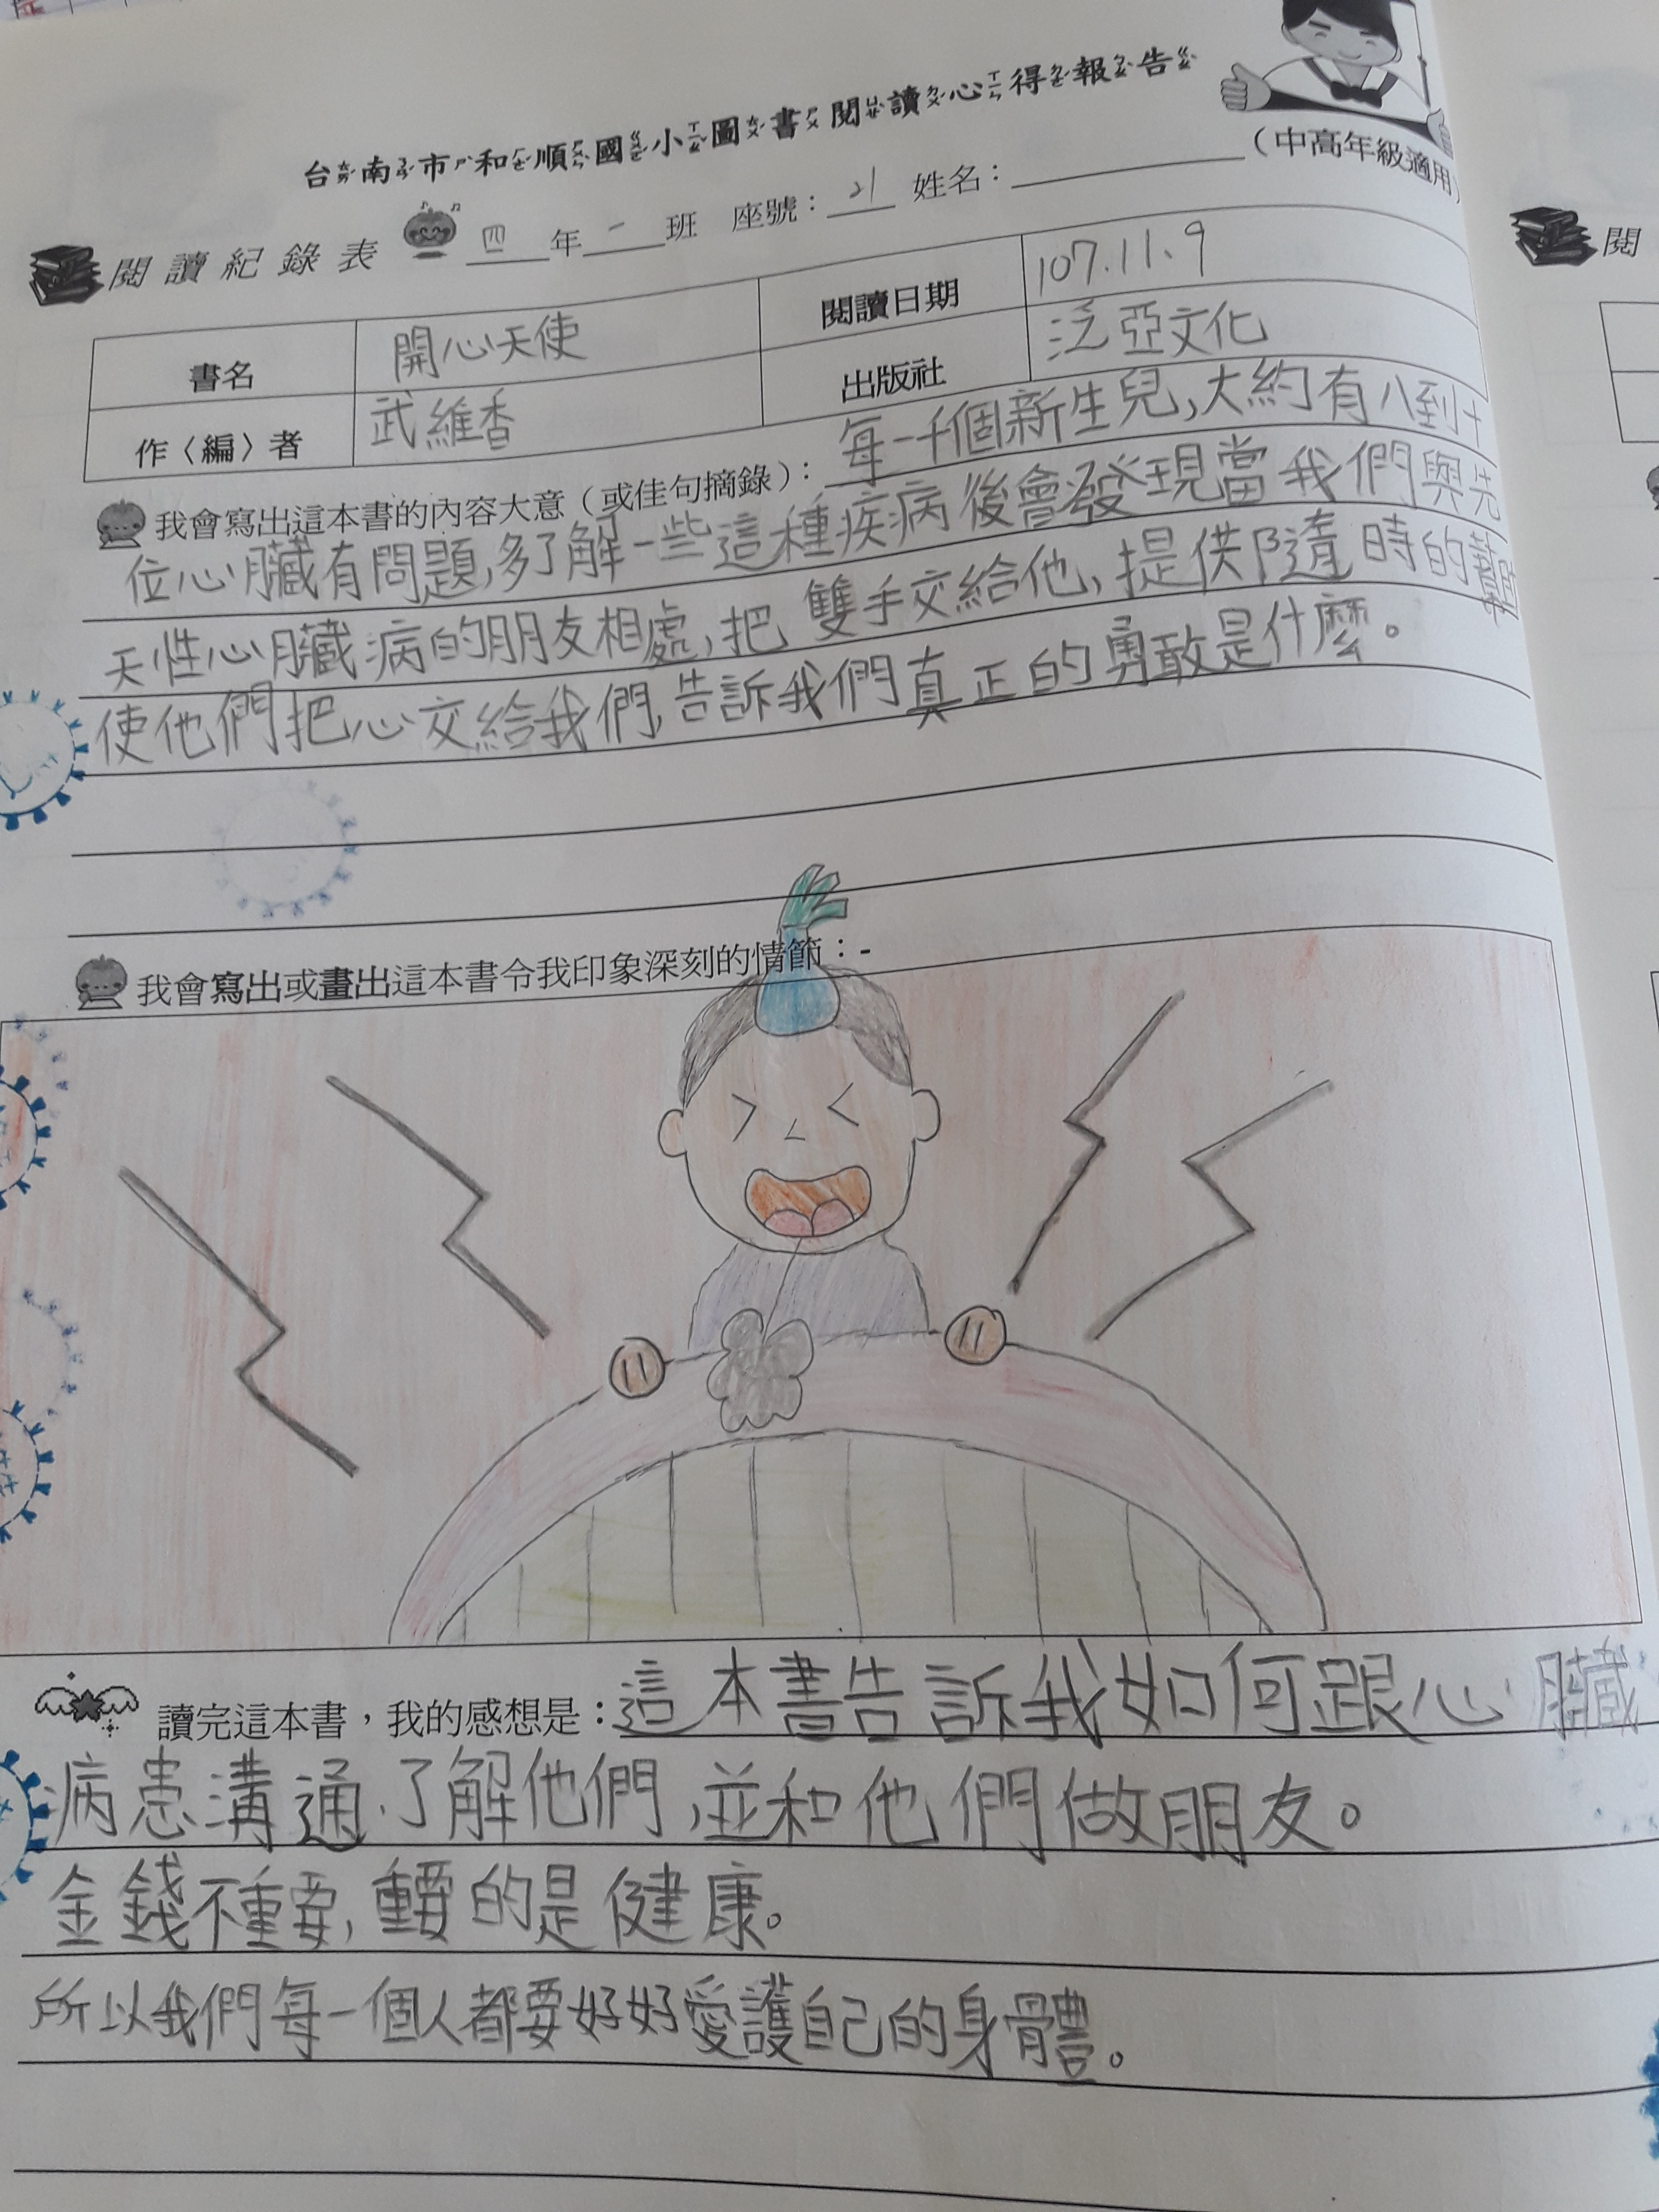 台南市和順國小圖書閱讀心得報告
（中高年級適用）
閱讀紀錄表 四年一班 座號：21 姓名：
書名 開心天使 閱讀日期 107.11.9
作〈編〉者 武維香 出版社 泛亞文化
我會寫出這本書的內容大意（或佳句摘錄）： 每一千個新生兒,大約有八到十
位心臟有問題,多了解一些這種疾病後會發現當我們與先
天性心臟病的朋友相處,把雙手交給他,提供隨時的
使他們把心交給我們,告訴我們真正的勇敢是什麼。
我會寫出或畫出這本書令我印象深刻的情節：-
讀完這本書，我的感想是：這本書告訴我如何跟心臟
病患溝通,了解他們,並和他們做朋友。
金錢不重要,重要的是健康。
所以我們每一個人都要好好愛護自己的身體。
閱